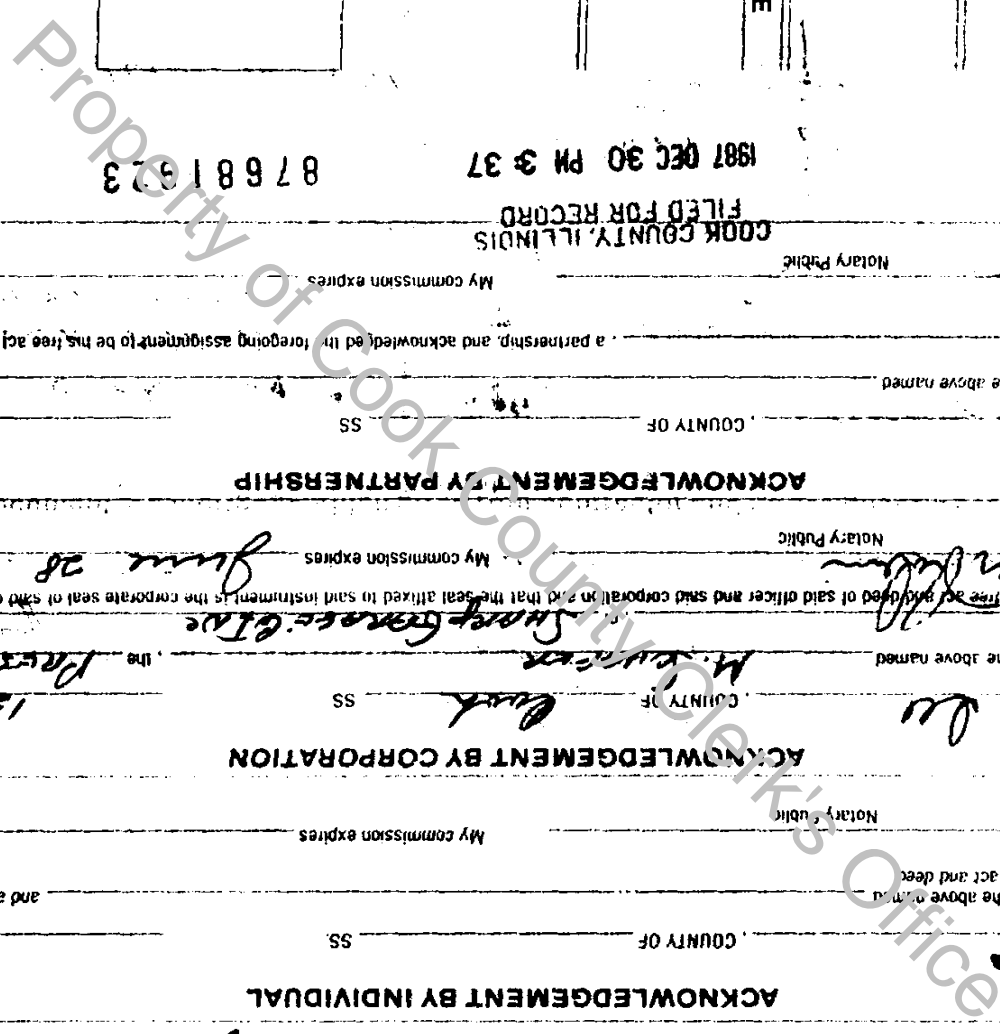 ACKNOWLEDGEMENT BY INDIVIDUAL
, COUNTY OF SS.
the above named and a
act and deed
Notary Public My commission expires
ACKNOWLEDGEMENT BY CORPORATION
COUNTY OF Cook SS
the above named the
free act and deed of said officer and said corporation and that the seal affixed to said instrument is the corporate seal of said
Notary Public My commission expires June 28
ACKNOWLEDGEMENT BY PARTNERSHIP
, COUNTY OF SS
e above named
, a partnership, and acknowledged the foregoing assignment to be his free act
Notary Public My commission expires
COOK COUNTY, ILLINOIS
FILED FOR RECORD
1987 DEC 30 PM 3:37
Property of Cook County Clerk's Office